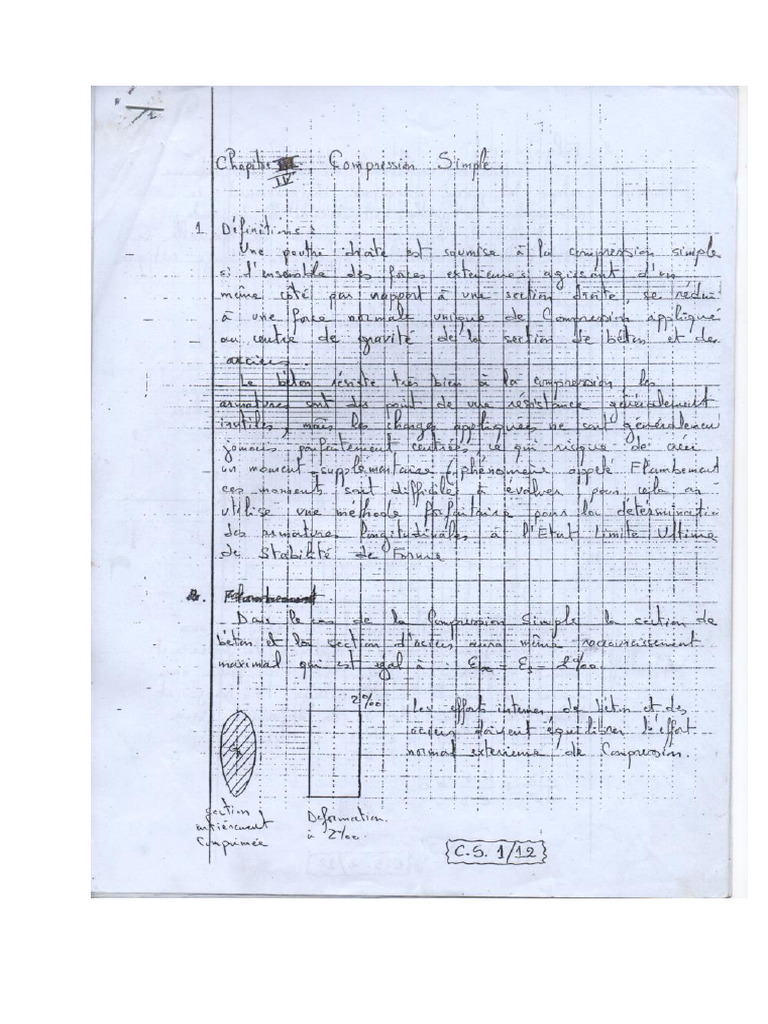 /1
Chapitre IV : Compression Simple
1. Définitions :
Une poutre droite est soumise à la compression simple
si l'ensemble des forces exterieures agissant d'un
même côté par rapport à une section droite, se réduit
à une force normale unique de Compression appliqué
au centre de gravité de la section de béton et des
aciers.
Le béton résiste très bien à la compression les
armatures sont du point de vue résistance généralement
inutiles, mais les charges appliquées ne sont généralement
jamais parfaitement centrées, ce qui risque de créer
un moment supplémentaire (phénomène appelé Flambement
ces moments sont difficile à évaluer pour cela on
utilise une méthode forfaitaire pour la détermination
des armatures longitudinales à l'Etat Limite Ultime
de Stabilité de Forme
Flambement
Dans le cas de la Compression Simple la section de
béton et la section d'aciers aura même raccourcissement
maximal qui est égal à : = εs = 2‰
2‰ Les efforts internes de béton et des
aciers doivent équilibrer l'effort
normal exterieure de Compression.
Section
entièrement
Comprimée
Deformation
à 2‰
C.S. 1/12